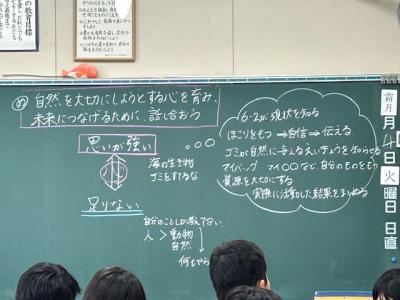 の教育目標
め 自然を大切にしようとする心を育み、
未来につなげるために、話し合おう
思いが強い
海の生き物
ゴミをすてるな
足りない
自分のことしか考えてない
人 > 動物
自然
何もやらない
6-2が現状を知る
ほこりをもつ→自信→伝える
ゴミが自然に与えるえいきょうを知らせる
マイバッグ、マイ〇〇など、自分のものをもつ
資源を大切にする
実際に活動した結果をまとめる
霜月
月
4
日
火
曜日
日直